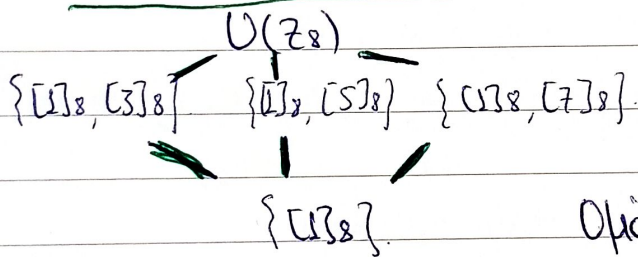 U(Z8)
{[1]8, [3]8} {[1]8, [5]8} {[1]8, [7]8}.
{[1]8}.